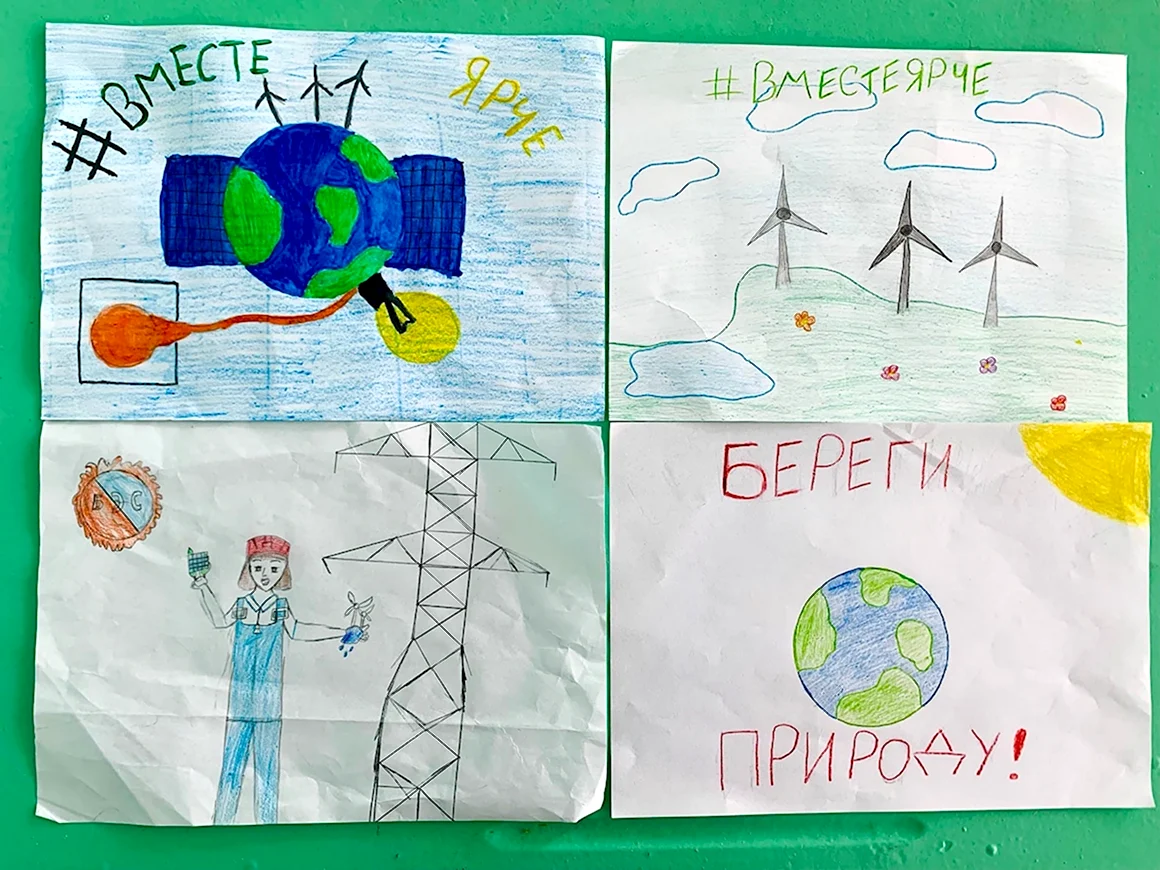 #ВМЕСТЕ ЯРЧЕ
#ВМЕСТЕЯРЧЕ
БЭС
БЕРЕГИ
ПРИРОДУ!